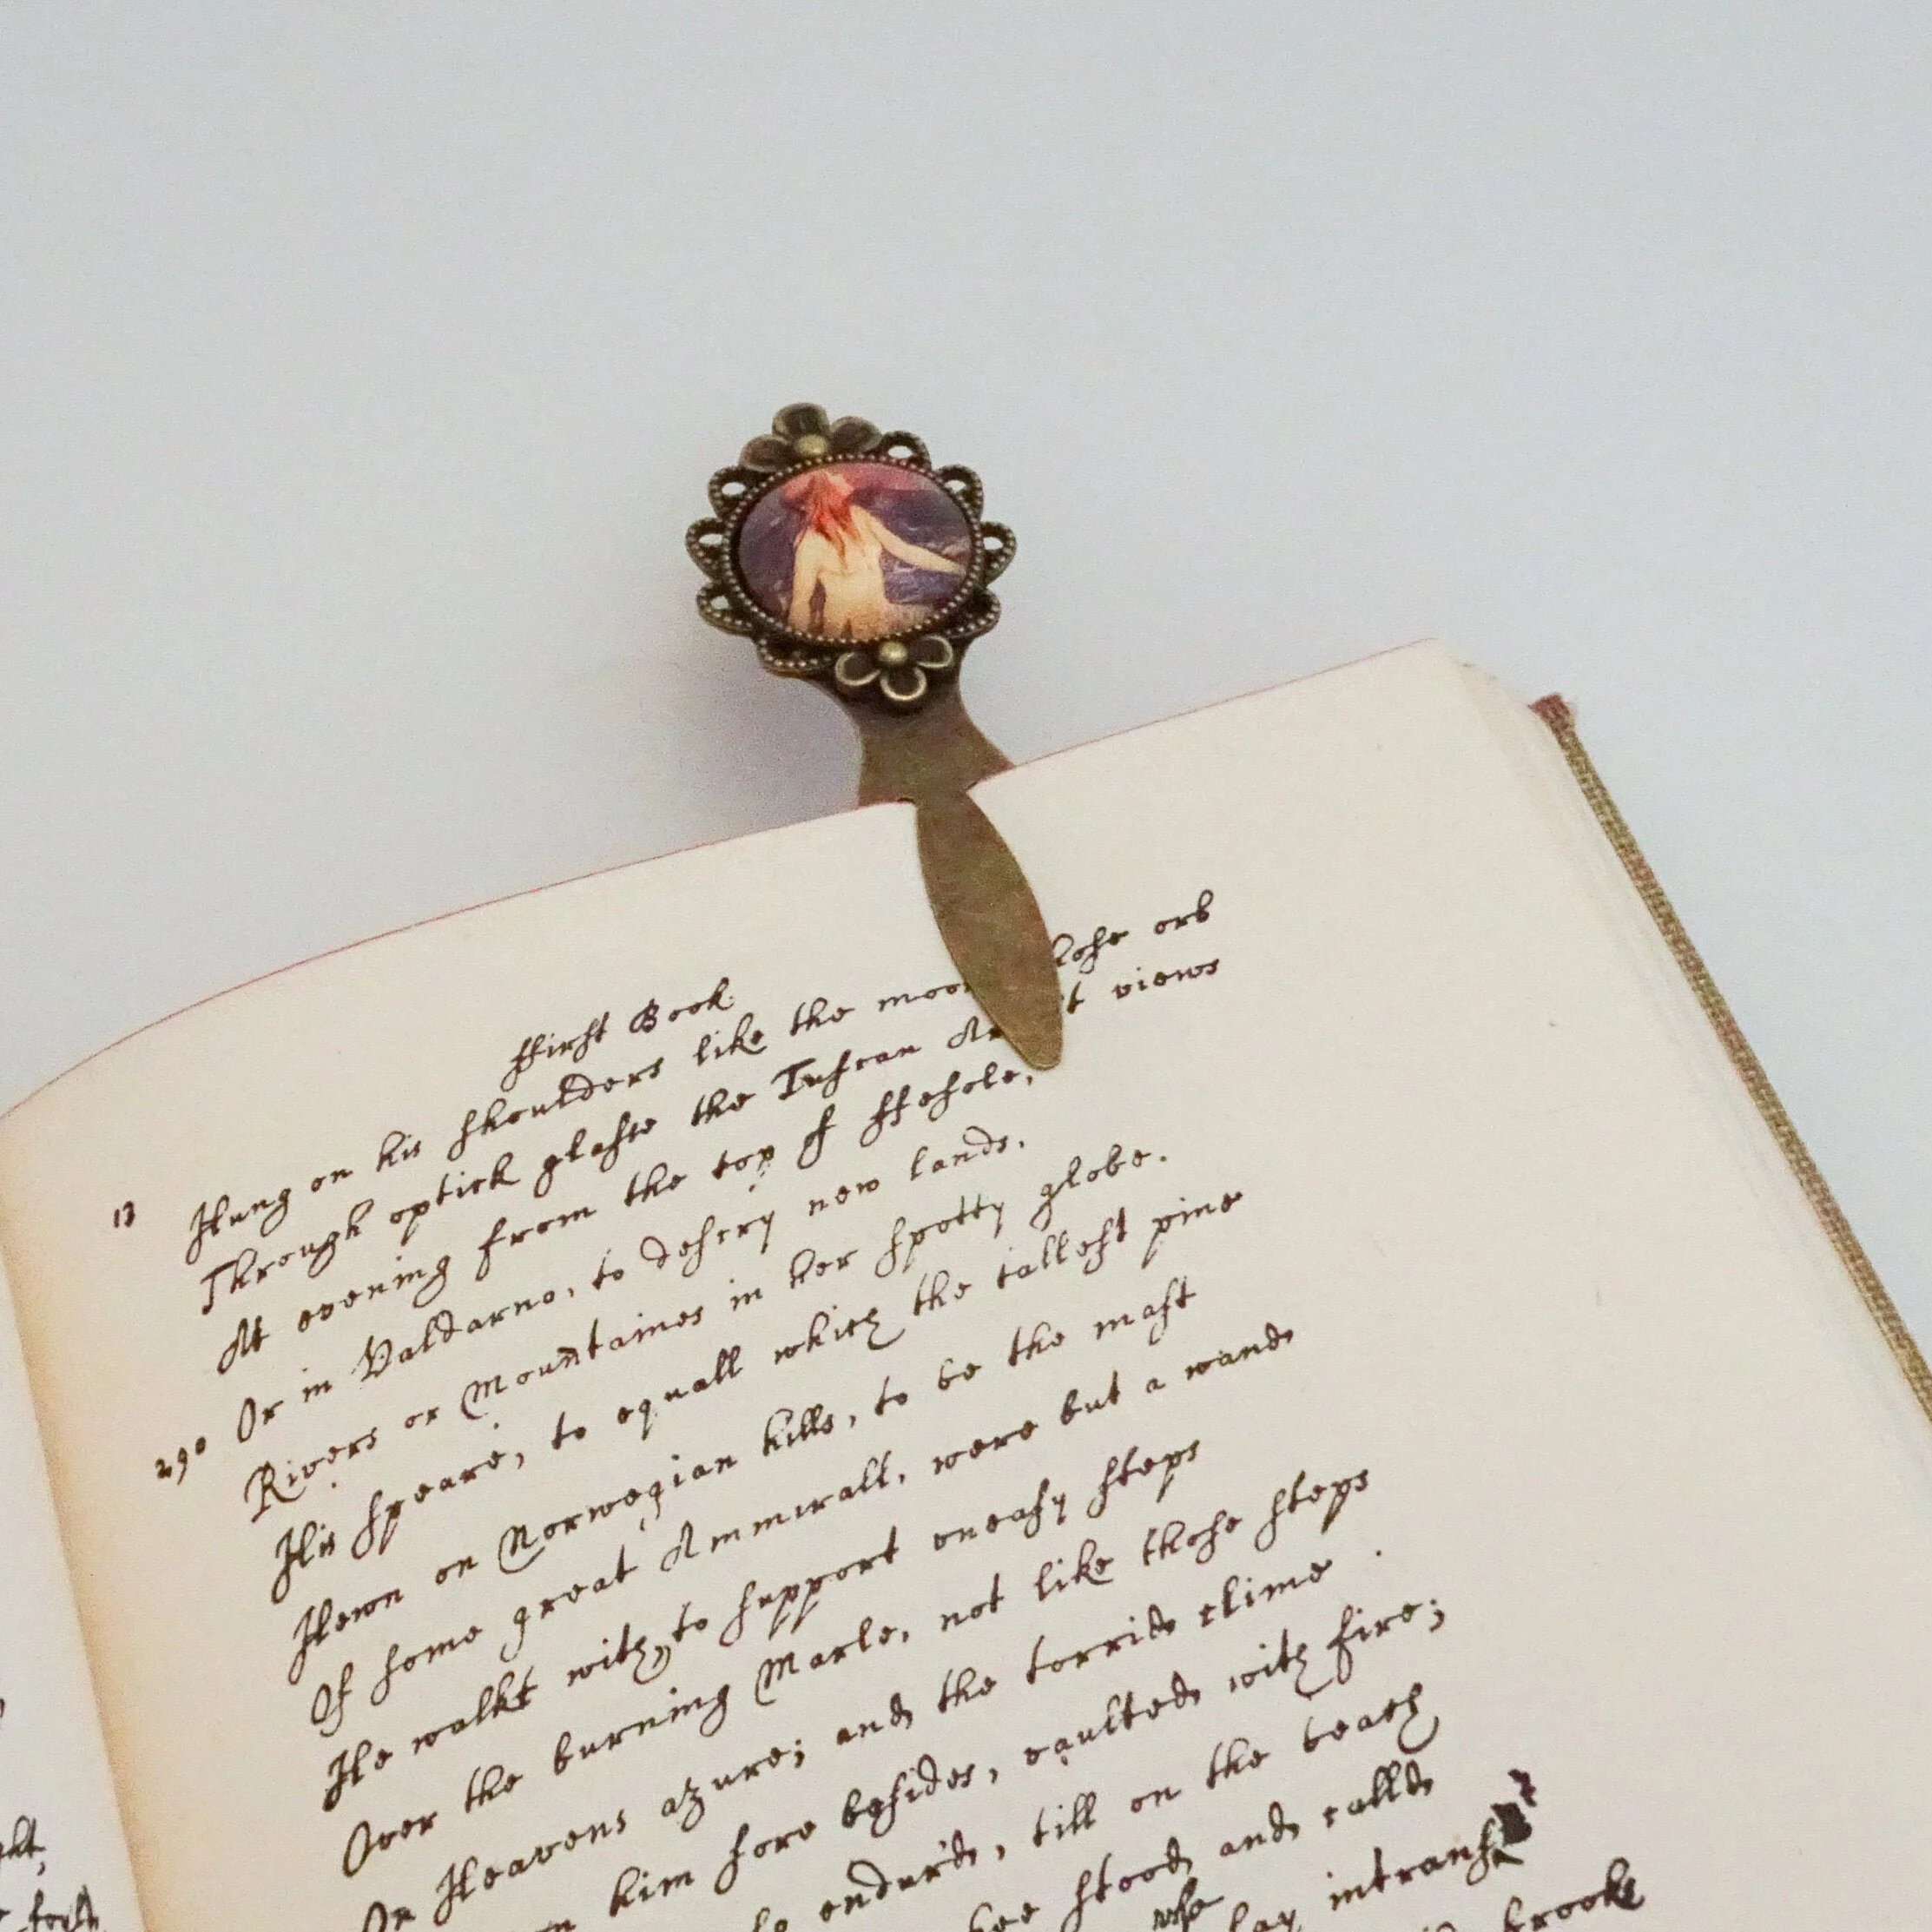 ffirst Book.
13 Hung on his shoulders like the moon lose orb
Through optick glasse the Tuscan Ar st views
At evening from the top of ffesole,
Or in Valdarno, to descry new lands,
290 Rivers or Mountaines in her spotty globe.
His speare, to equall which the tallest pine
Hewn on Norwegian hills, to be the mast
Of some great Ammirall, were but a wand
He walkt with, to support uneasy steps
Over the burning Marle, not like those steps
On Heavens azure; and the torrid clime
on him sore besides, vaulted with fire;
so endur'd, till on the beach
hee stood and calld
who lay intranst
brooks